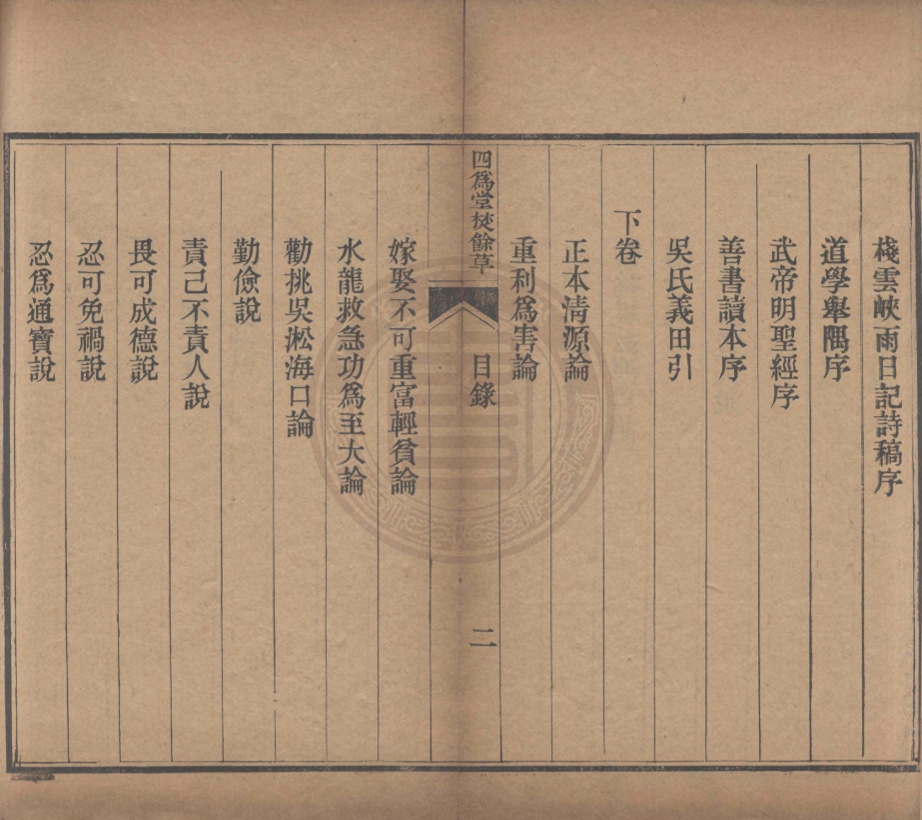 棧雲峽雨日記詩稿序
道學舉隅序
武帝明聖經序
善書讀本序
吳氏義田引
下卷
正本清源論
重利爲害論
四爲堂焚餘草
目錄
二
嫁娶不可重富輕貧論
水龍救急功爲至大論
勸挑吳淞海口論
勤儉說
責己不責人說
畏可成德說
忍可免禍說
忍爲通寶說